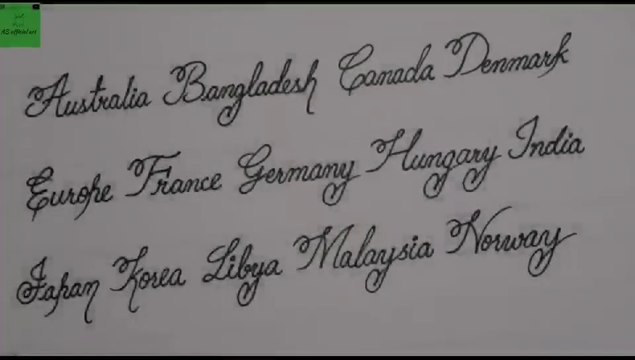 Australia Bangladesh Canada Denmark
Europe France Germany Hungary India
Japan Korea Libya Malaysia Norway